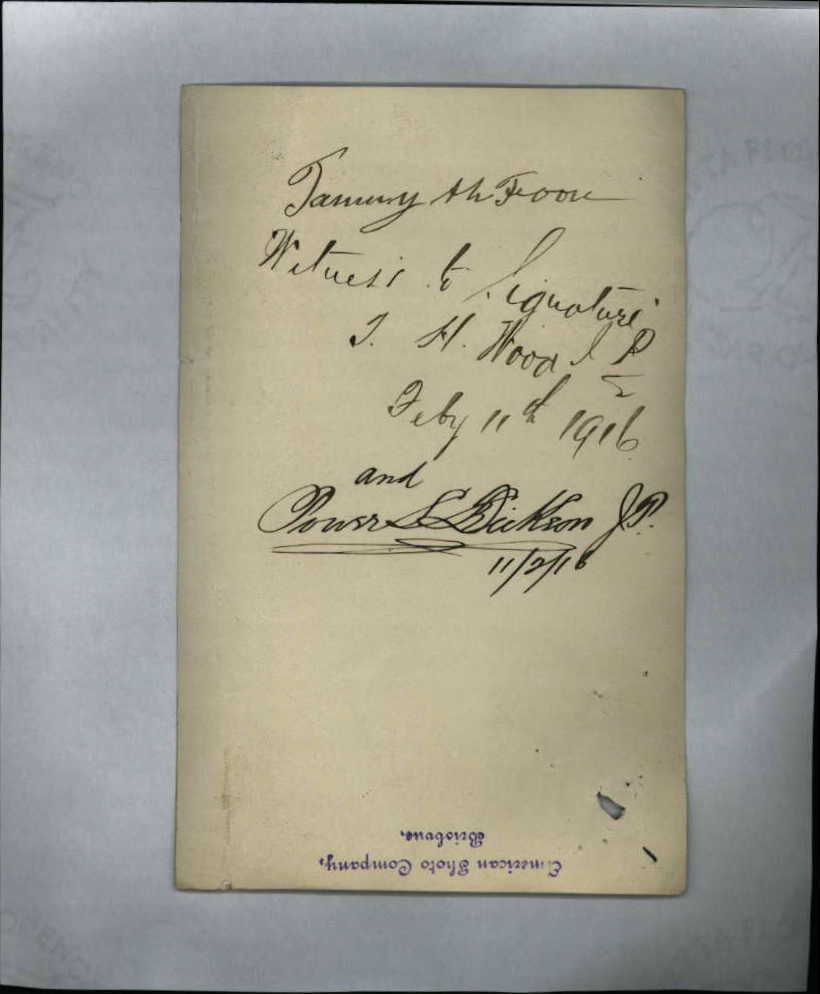 Tammy Ah Foon
Witness to Signature
T. H. Wood J P
Feby 11th 1916
and
Power L Dickson J.P.
11/2/16
American Photo Company,
Brisbane.